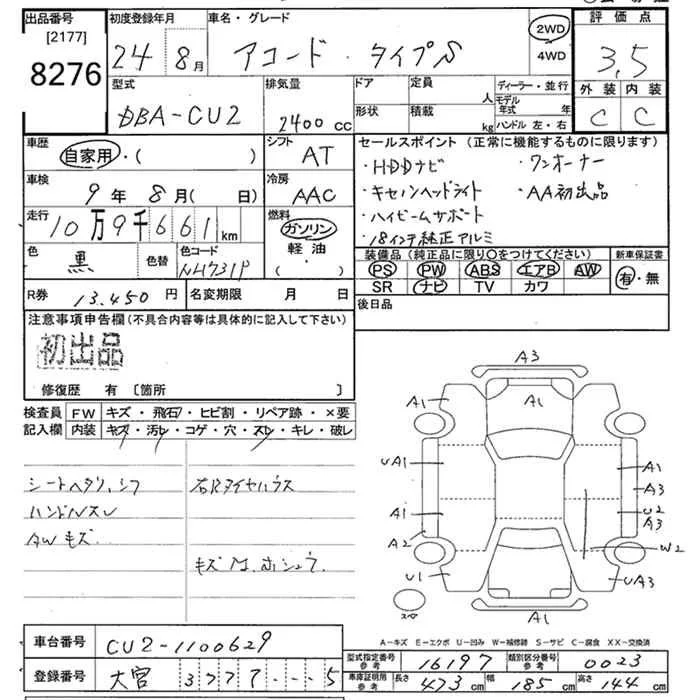 出品番号
[2177]
8276
初度登録年月
24 8月
車名・グレード
アコード ・ タイプS
2WD
4WD
評価点
3,5
外装 内装
C C
型式
DBA-CU2
排気量
2400cc
ドア
形状
定員
人
積載
kg
ディーラー・並行
モデル年式 年
ハンドル 左・右
車歴
自家用・( )
シフト
AT
セールスポイント (正常に機能するものに限ります)
・HDDナビ ・ワンオーナー
・キセノンヘッドライト ・AA初出品
・ハイビームサポート
・18インチ純正アルミ
車検
9年 8月( 日)
冷房
AAC
走行
10万9千661km
燃料
ガソリン
軽油・
( )
色
黒
色替
色コード
NH731P
装備品 (純正品に限り○をつけてください)
PS PW ABS エアB AW
SR ナビ TV カワ
新車保証書
有・無
R券
13,450円
名変期限 月 日
後日品
注意事項申告欄(不具合内容等は具体的に記入して下さい)
初出品
修復歴 有 〔箇所 〕
検査員 FW キズ・飛石・ヒビ割・リペア跡・×要
記入欄 内装 キズ・汚レ・コゲ・穴・スレ・キレ・破レ
シートヘタリ、シワ
ハンドルスレ
AWキズ
右Rタイヤハウス
A3
A1
A1
UA1
A1
A2
U1
A1
A3
U2
A3
W2
UA3
A1
A-キズ E-エクボ U-凹み W-補修跡 S-サビ C-腐食 XX-交換済
車台番号
CU2-1100629
登録番号
大宮 3777 ・・・5
型式指定番号
参考
16197
類別区分番号
参考
0023
車庫証明用
参考
長さ 473cm 幅 185cm 高さ 144cm